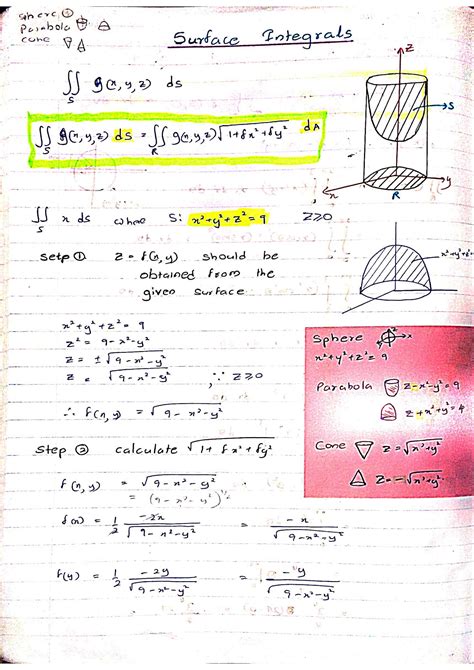 sphere ⊕
Parabola
cone
Surface Integrals
∬_S g(x,y,z) ds
∬_S g(x,y,z) ds = ∬_R g(x,y,z) √(1+fx²+fy²) dA
z
S
y
x
R
∬_S x ds where S: x²+y²+z²=9 z≥0
setp ① z = f(x,y) should be
obtained from the
given surface
x²+y²+z² = 9
z² = 9-x²-y²
z = ±√(9-x²-y²)
z = √(9-x²-y²) , ∵ z≥0
∴ f(x,y) = √(9-x²-y²)
Sphere
x²+y²+z²=9
Parabola z-x²-y²=9
z+x²+y²=4
Cone z=√(x²+y²)
z=-√(x²+y²)
Step ② calculate √(1+fx²+fy²)
f(x,y) = √(9-x²-y²)
= (9-x²-y²)^½
f(x) = 1/2 -2x/√(9-x²-y²) = -x/√(9-x²-y²)
f(y) = 1/2 -2y/√(9-x²-y²) = -y/√(9-x²-y²)